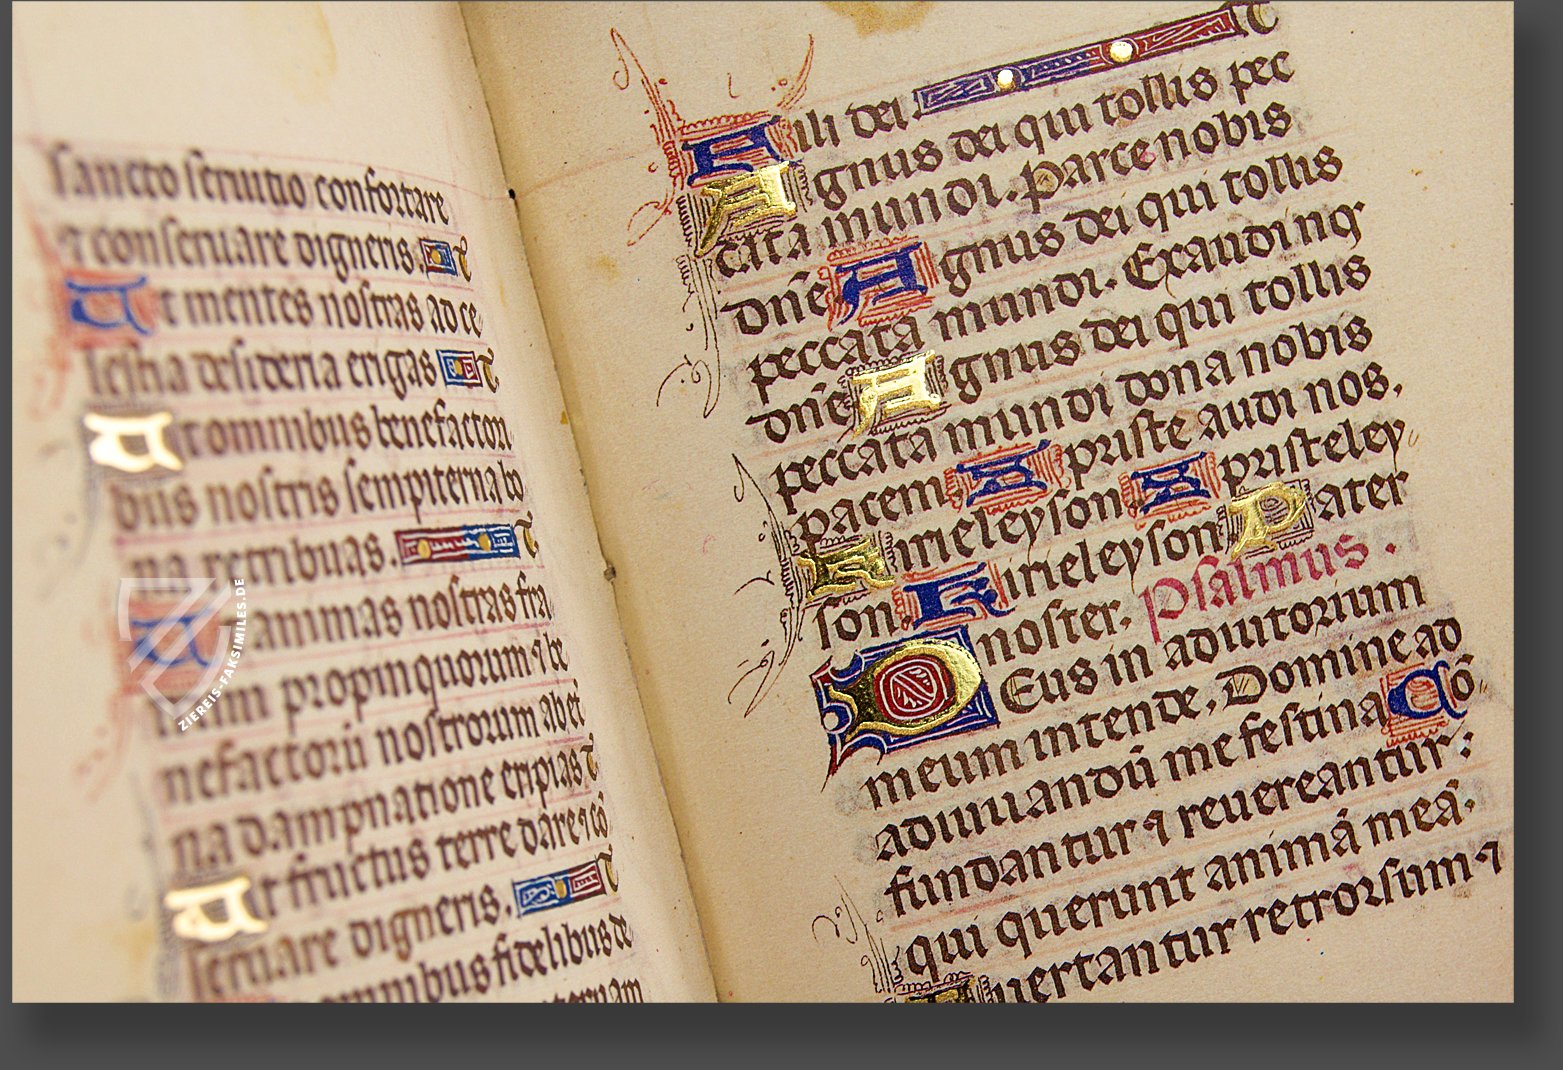 sancto seruitio confortare
et conseruare digneris. T
Ut mentes nostras ad ce
lestia desideria erigas T
Ut omnibus benefactori
bus nostris sempiterna bo
na retribuas. T
animas nostras fra
trum propinquorum ⁊ be
nefactorū nostrorum ab et
na dampnatione eripias T
Ut fructus terre dare ⁊ cō
seruare digneris. T
omnibus fidelibus de
ternam
ZIEREIS-FAKSIMILES.DE
Fili dei T
Agnus dei qui tollis pec
cata mundi. Parce nobis
dn̄e Agnus dei qui tollis
peccata mundi. Exaudi nos
dn̄e Agnus dei qui tollis
peccata mundi dona nobis
pacem Xpriste audi nos.
Kirieleyson Xpristeley
son Kirieleyson Pater
noster. Psalmus.
DEus in adiutorium
meum intende. Domine ad
adiuuandū me festina Cō
fundantur ⁊ reuereantur:
qui querunt animā meā.
Auertantur retrorsum ⁊